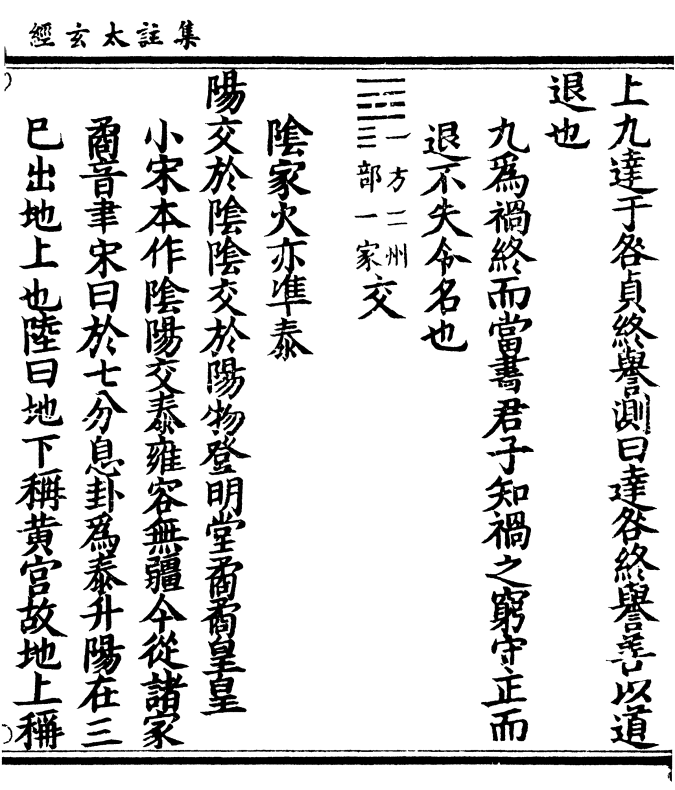 集註太玄經
上九達于咎貞終譽測曰達咎終譽善以道
退也
九爲禍終而當晝君子知禍之窮守正而
退不失令名也
一方二州
三部一家
交
陰家火亦準泰
陽交於陰陰交於陽物登明堂矞矞皇皇
小宋本作陰陽交泰雍容無疆今從諸家
矞音聿宋曰於七分息卦爲泰升陽在三
已出地上也陸曰地下稱黄宫故地上稱